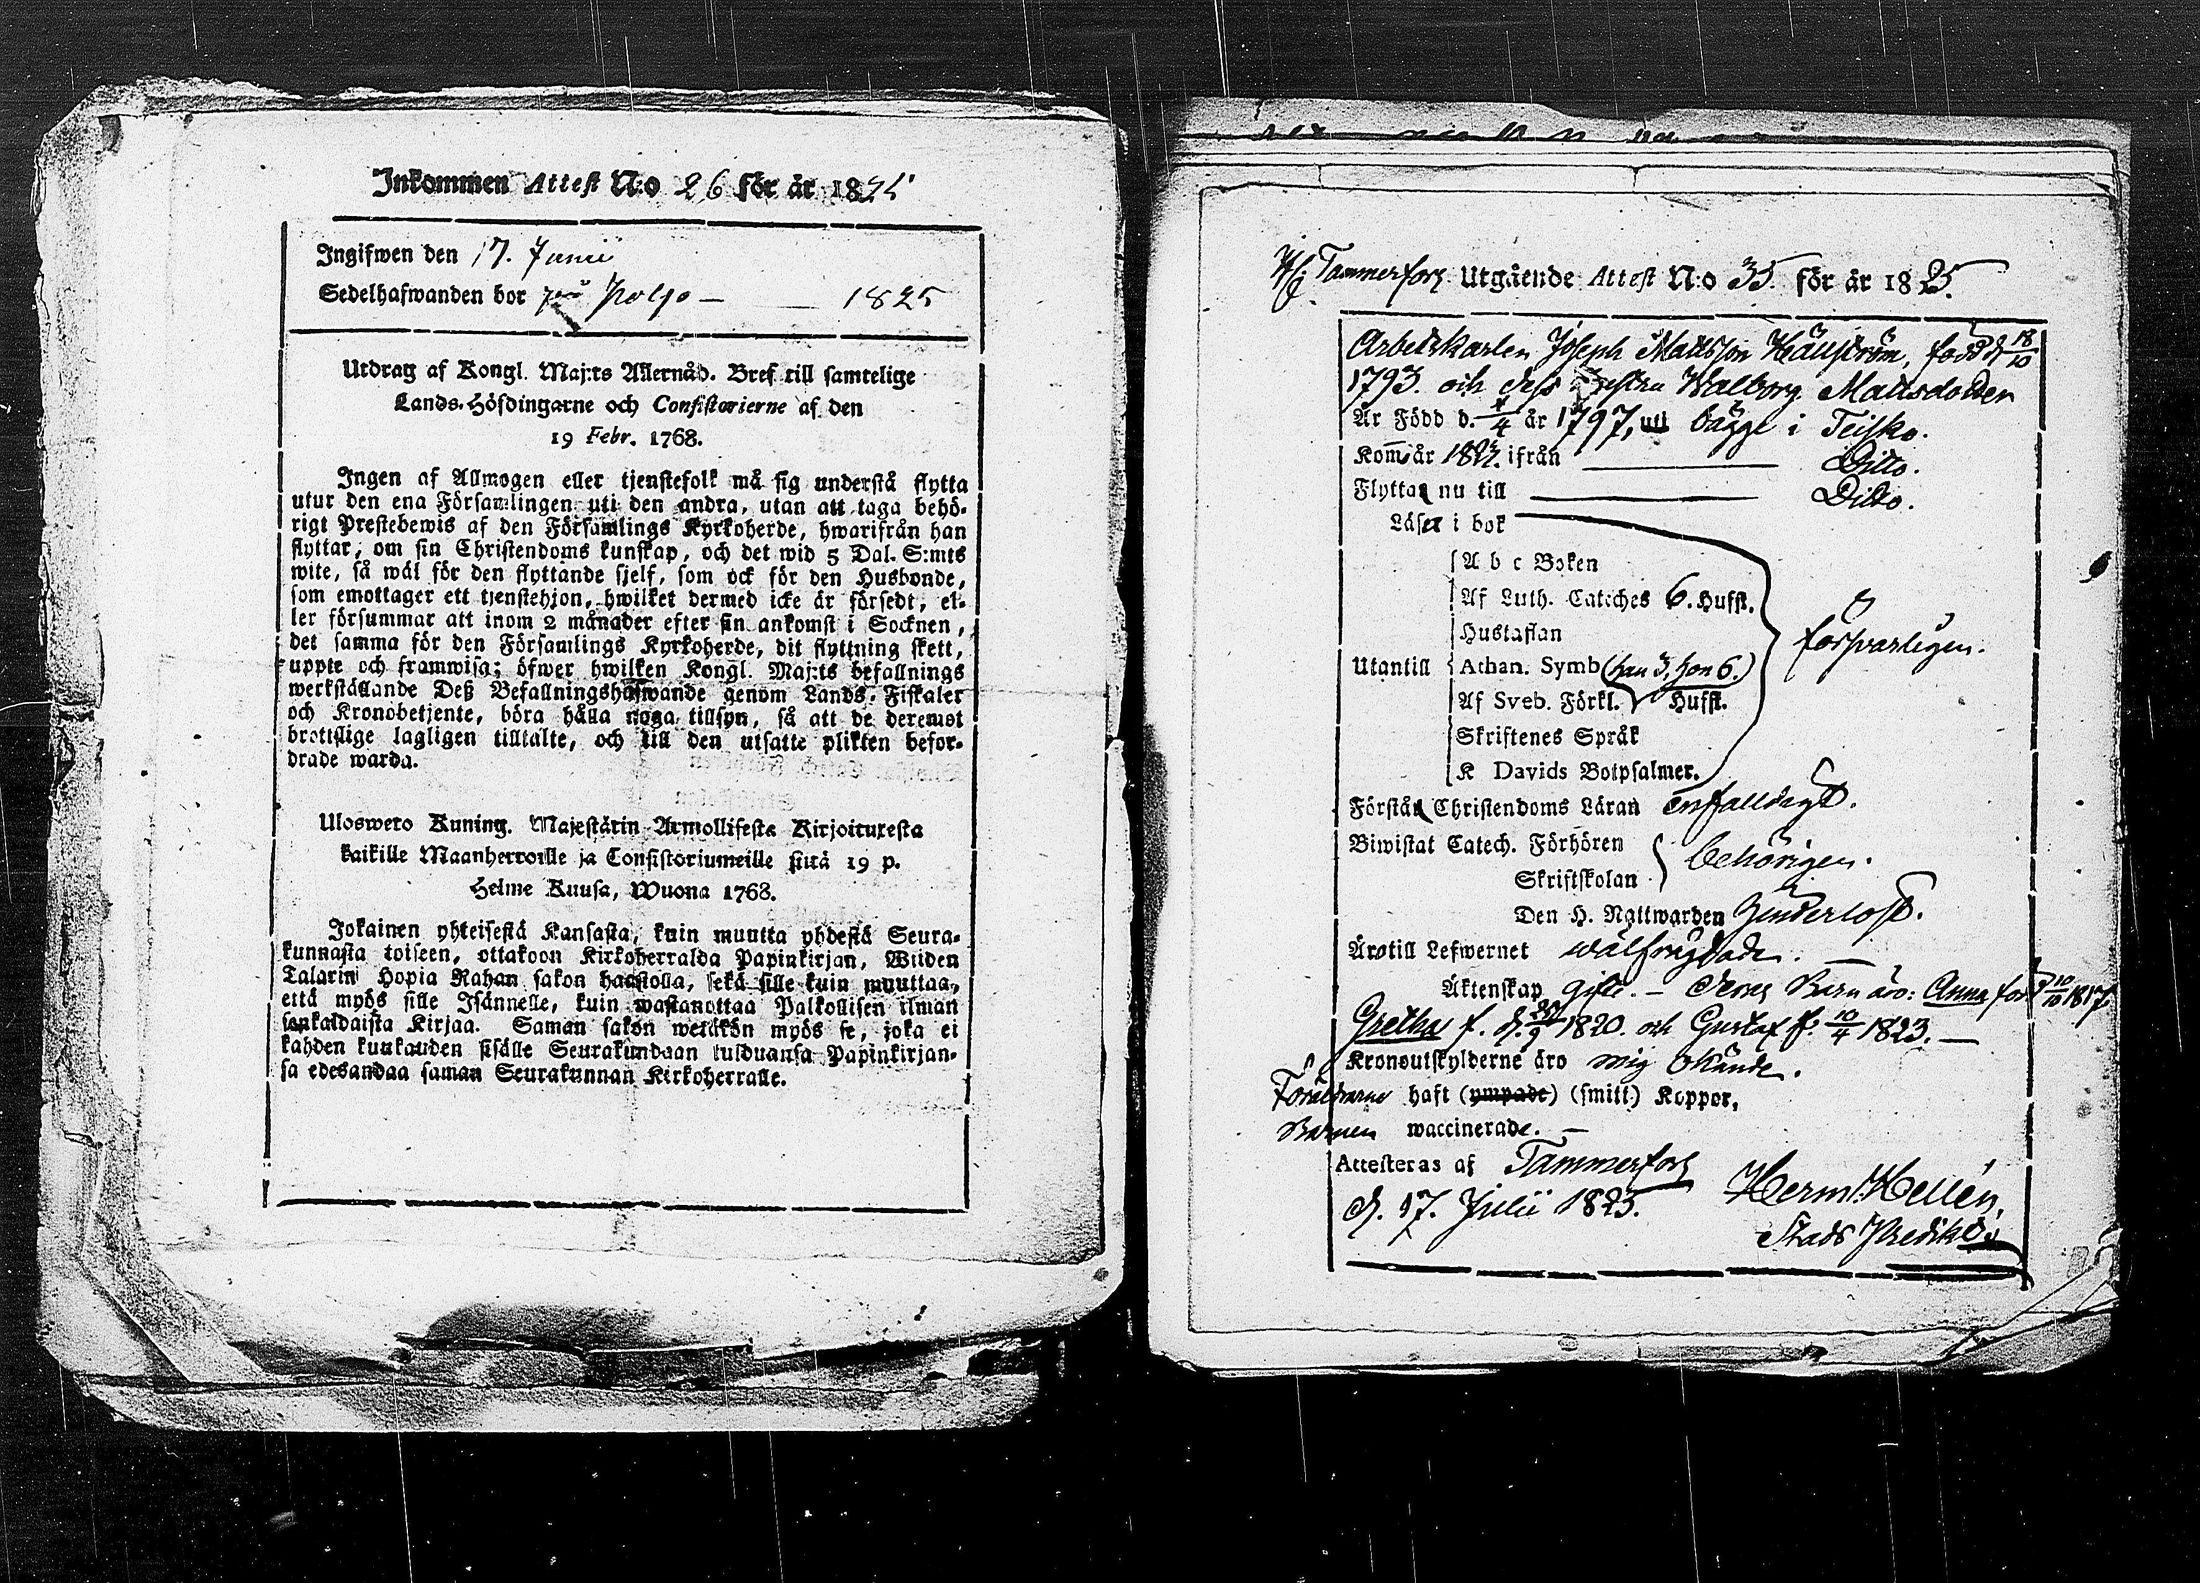 Inkommen Attest N:o 26 för år 1825
Ingifwen den 17. Junii
Sedelhafwanden bor på Pohjo — 1825
Utdrag af Kongl. Maj:ts Allernåd. Bref till samtelige
Lands-Höfdingarne och Consistorierne af den
19 Febr. 1768.
Ingen af Allmogen eller tjenstefolk må sig understå flytta
utur den ena Församlingen uti den andra, utan att taga behö-
rigt Prestebewis af den Församlings Kyrkoherde, hwarifrån han
flyttar, om sin Christendoms kunskap, och det wid 5 Dal. S:mts
wite, så wäl för den flyttande sjelf, som ock för den Husbonde,
som emottager ett tjenstehjon, hwilket dermed icke är försedt, el-
ler försummar att inom 2 månader efter sin ankomst i Socknen,
det samma för den Församlings Kyrkoherde, dit flyttning skett,
uppte och framwisa; öfwer hwilken Kongl. Maj:ts befallnings
werkställande Deß Befallningshafwande genom Lands-Fiskaler
och Kronobetjente, böra hålla noga tillsyn, så att de deremot
brottslige lagligen tilltalte, och till den utsatte plikten befor-
drade warda.
Ulosweto Kuning. Majestätin Armollisesta Kirjoituxesta
kaikille Maanherroille ja Consistoriumeille siitä 19 p.
Helme Kuusa, Wuona 1768.
Jokainen yhteisestä Kansasta, kuin muutta yhdestä Seura-
kunnasta toiseen, ottakoon Kirkoherralda Papinkirjan, Wiiden
Talarin Hopia Rahan sakon haastolla, sekä sille kuin muuttaa,
että myös sille Isännelle, kuin wastanottaa Palkollisen ilman
senkaldaista Kirjaa. Saman sakon wetäkön myös se, joka ei
kahden kuukauden sisälle Seurakundaan tulduansa Papinkirjan-
sa edesandaa saman Seurakunnan Kirkoherralle.
Tammerfors Utgående Attest N:o 35 för år 1825.
Arbetskarlen Joseph Mattsson Hällström, född d 18/10
1793. och dess hustru Walborg Mattsdotter
Är Född d. /4 år 1797, uti bägge i Teisko.
Kom år 182 ifrån — Ditto.
Flyttar nu till — Ditto.
Läser i bok
A b c Boken
Af Luth. Cateches 6. Hufst.
Hustaflan
försvarligen.
Utantill Athan. Symb (han 3, hon 6.)
Af Sveb. Förkl. Hufst.
Skriftenes Språk
K Davids Botpsalmer.
Förstår Christendoms Läran enfalldigt.
Biwistat Catech. Förhören
behörigen.
Skriftskolan
Den H. Nattwarden
Äro till Lefwernet wälfrägdade. —
Äktenskap gifte. — deras Barn äro: Anna född 10/10 1817
Gretha f. d. 1820. och Gustaf f: 10/4 1823. —
Kronoutskylderne äro mig okände.
Föräldrarne haft (ympade) (smitt.) Koppor,
Barnen waccinerade. —
Attesteras af Tammerfors
d. 17. Julii 1825. Herm: Hellén,
Stads Prediko.